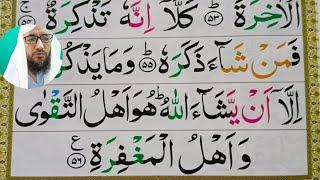 الْاٰخِرَةَ ؕ﴿۵۳﴾ كَلَّاۤ اِنَّهٗ تَذْكِرَةٌ ۚ﴿۵۴﴾
فَمَنْ شَآءَ ذَكَرَهٗ ؕ﴿۵۵﴾ وَمَا يَذْكُرُوْنَ
اِلَّاۤ اَنْ يَّشَآءَ اللّٰهُ ؕ هُوَ اَهْلُ التَّقْوٰى
وَ اَهْلُ الْمَغْفِرَةِ ﴿۵۶﴾ ع